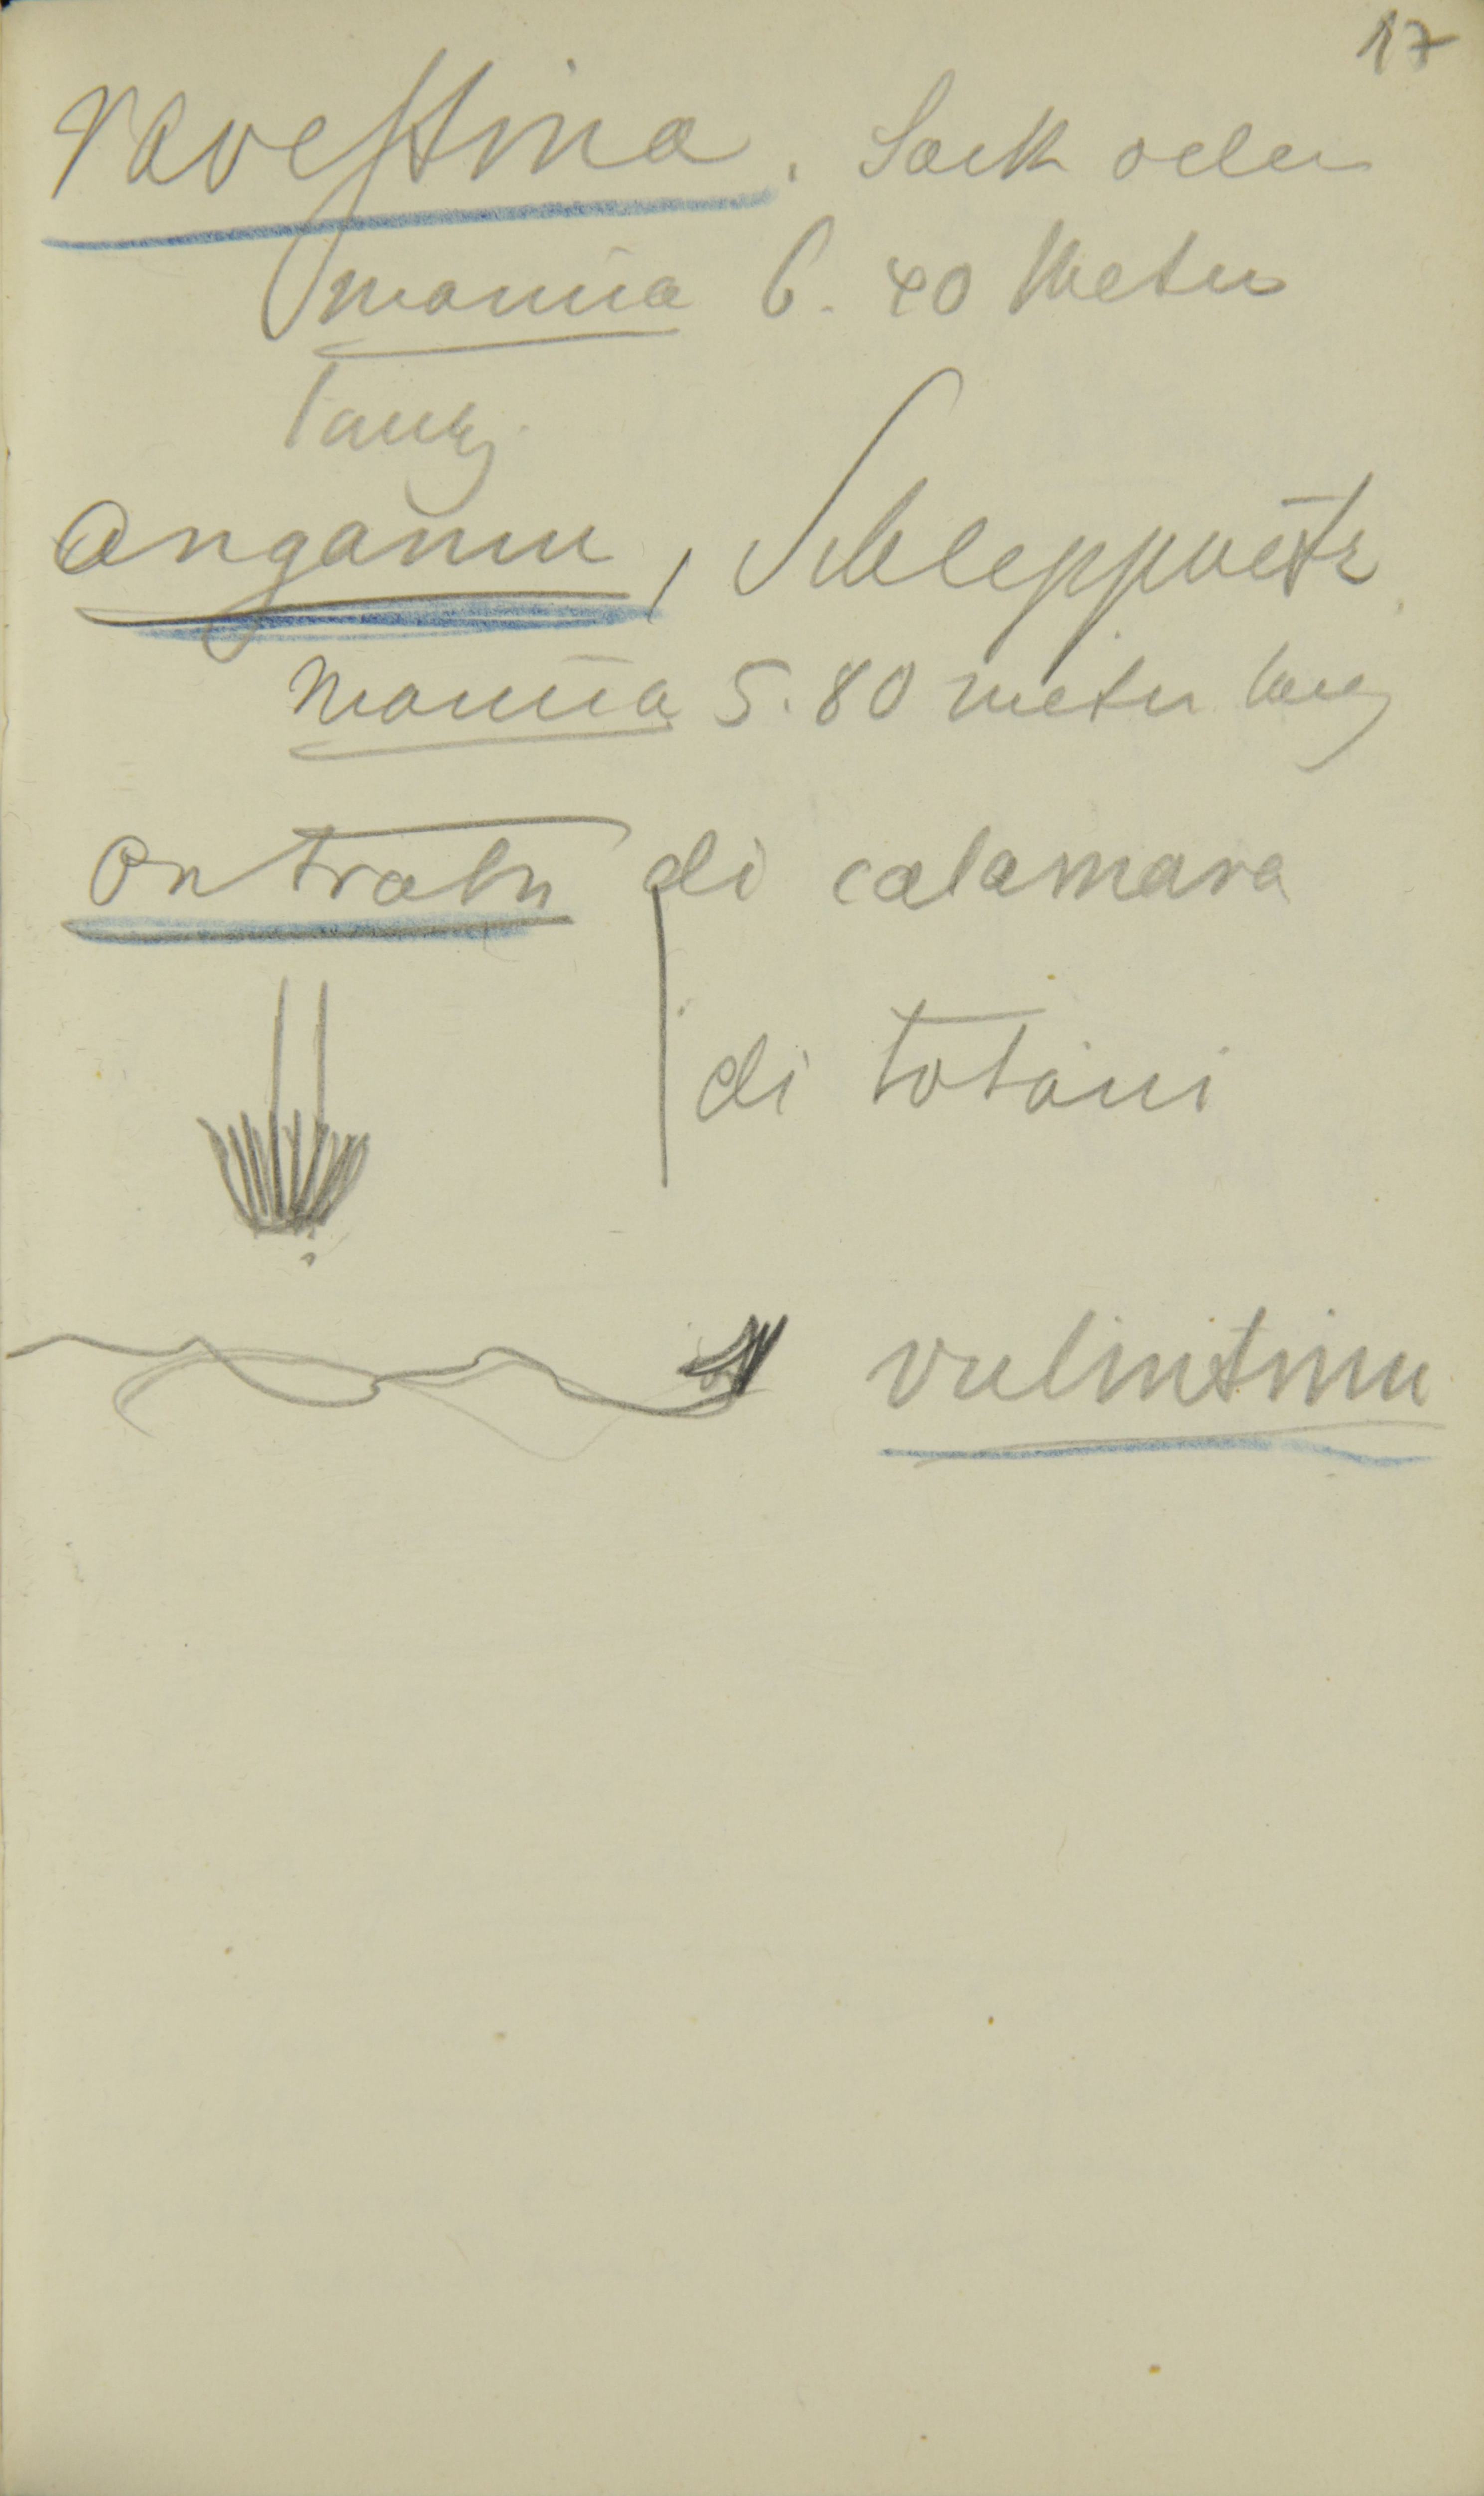 17
ravestina. Sack oder
manica 6.40 Meter
lang.
angamu, Schleppnetz
manica 5.80 meter lang
ontratu di calamara
di totani